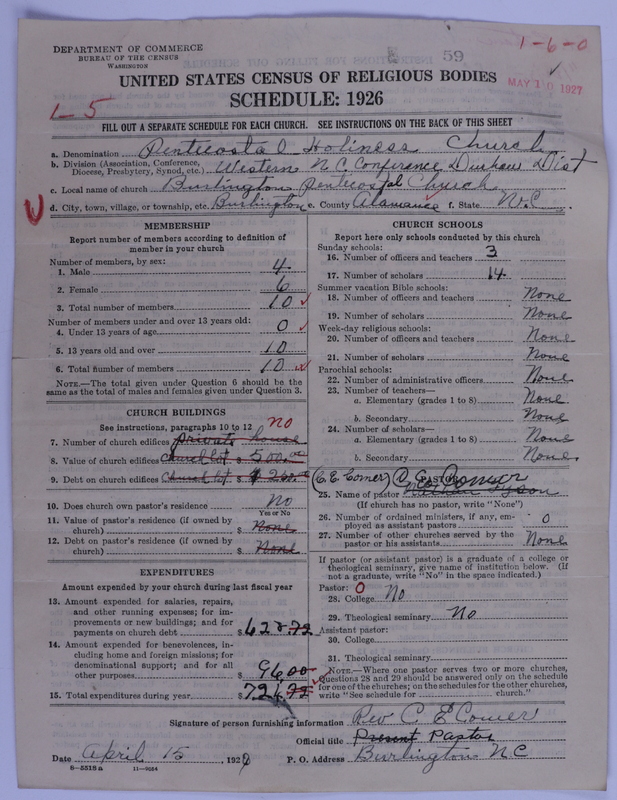 59
1-6-0
DEPARTMENT OF COMMERCE
BUREAU OF THE CENSUS
WASHINGTON
UNITED STATES CENSUS OF RELIGIOUS BODIES
MAY 10 1927
SCHEDULE: 1926
1-5
FILL OUT A SEPARATE SCHEDULE FOR EACH CHURCH. SEE INSTRUCTIONS ON THE BACK OF THIS SHEET
a. Denomination Pentecostal Holiness Church
b. Division (Association, Conference, Diocese, Presbytery, Synod, etc.) Western N C Conferance Durham Dist
c. Local name of church Burlington Pentecostal Church
d. City, town, village, or township, etc. Burlington e. County Alamance f. State N.C.
MEMBERSHIP
Report number of members according to definition of
member in your church
Number of members, by sex:
1. Male 4
2. Female 6
3. Total number of members 10
Number of members under and over 13 years old:
4. Under 13 years of age 0
5. 13 years old and over 10
6. Total number of members 10
NOTE.—The total given under Question 6 should be
the same as the total of males and females given under Question 3.
CHURCH BUILDINGS
See instructions, paragraphs 10 to 12 no
7. Number of church edifices private house
8. Value of church edifices church lot $ 500.00
9. Debt on church edifices church lot $ 200.00
10. Does church own pastor's residence No
Yes or No
11. Value of pastor's residence (if owned by
church) $ None
12. Debt on pastor's residence (if owned by
church) $ None
EXPENDITURES
Amount expended by your church during last fiscal year
13. Amount expended for salaries, repairs,
and other running expenses; for im-
provements or new buildings; and for
payments on church debt $ 628.92
14. Amount expended for benevolences, in-
cluding home and foreign missions; for
denominational support; and for all
other purposes $ 96.00
15. Total expenditures during year $ 724.92
CHURCH SCHOOLS
Report here only schools conducted by this church
Sunday schools:
16. Number of officers and teachers 3
17. Number of scholars 14
Summer vacation Bible schools:
18. Number of officers and teachers None
19. Number of scholars None
Week-day religious schools:
20. Number of officers and teachers None
21. Number of scholars None
Parochial schools:
22. Number of administrative officers None
23. Number of teachers—
a. Elementary (grades 1 to 8) None
b. Secondary None
24. Number of scholars—
a. Elementary (grades 1 to 8) None
b. Secondary None
(C. E. Comer) C. E. Comer
PASTOR
25. Name of pastor
(If church has no pastor, write "None")
26. Number of ordained ministers, if any, em-
ployed as assistant pastors 0
27. Number of other churches served by the
pastor or his assistants None
If pastor (or assistant pastor) is a graduate of a college or
theological seminary, give name of institution below. (If
not a graduate, write "No" in the space indicated.)
Pastor: 0
28. College No
29. Theological seminary No
Assistant pastor:
30. College
31. Theological seminary
NOTE.—Where one pastor serves two or more churches,
Questions 28 and 29 should be answered only on the schedule
for one of the churches; on the schedules for the other churches,
write "See schedule for church."
Signature of person furnishing information Rev C E Comer
Official title Present Pastor
Date April 15 192 P. O. Address Burlington N C
8-5518 a 11-9684